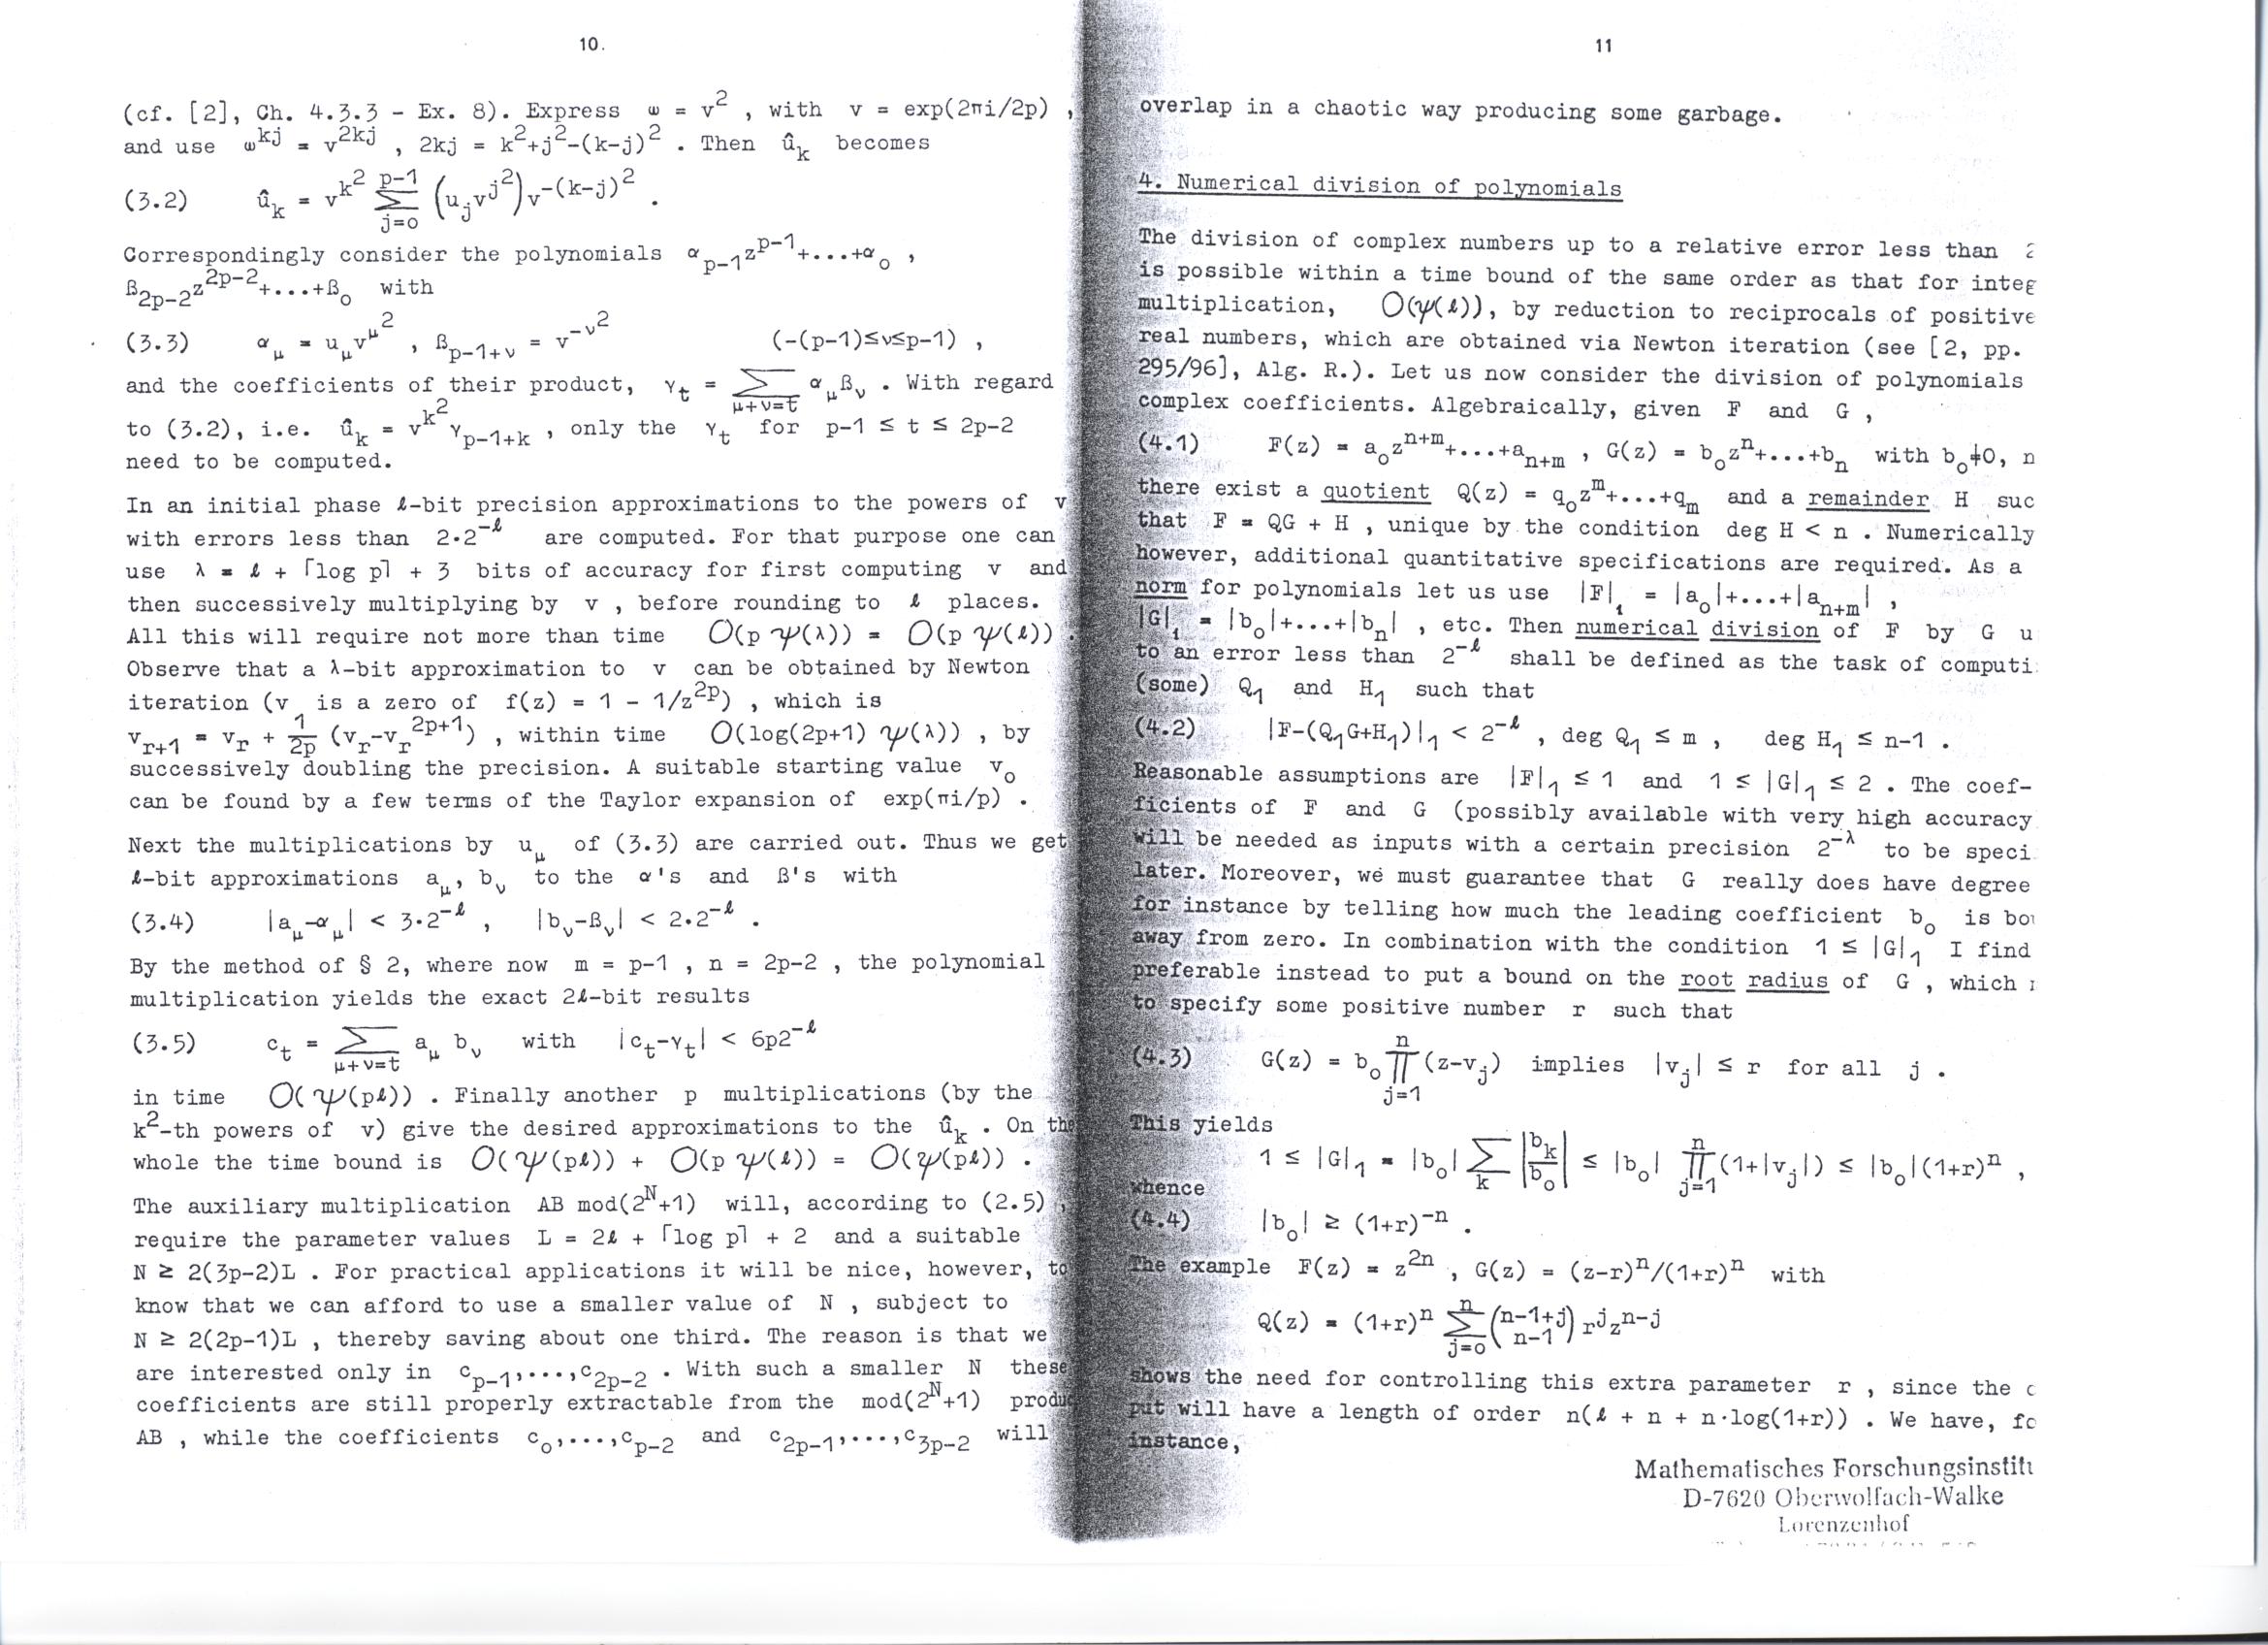 10.
(cf. [2], Ch. 4.3.3 - Ex. 8). Express ω = v² , with v = exp(2πi/2p) ,
and use ω^kj = v^2kj , 2kj = k²+j²-(k-j)² . Then û_k becomes
(3.2) û_k = v^k² Σ_{j=o}^{p-1} (u_j v^j²) v^-(k-j)² .
Correspondingly consider the polynomials α_{p-1}z^{p-1}+...+α_o ,
ß_{2p-2}z^{2p-2}+...+ß_o with
(3.3) α_μ = u_μ v^μ² , ß_{p-1+ν} = v^-ν² (-(p-1)≤ν≤p-1) ,
and the coefficients of their product, γ_t = Σ_{μ+ν=t} α_μ ß_ν . With regard
to (3.2), i.e. û_k = v^k² γ_{p-1+k} , only the γ_t for p-1 ≤ t ≤ 2p-2
need to be computed.
In an initial phase ℓ-bit precision approximations to the powers of v
with errors less than 2·2^-ℓ are computed. For that purpose one can
use λ = ℓ + ⌈log p⌉ + 3 bits of accuracy for first computing v and
then successively multiplying by v , before rounding to ℓ places.
All this will require not more than time O(p ψ(λ)) = O(p ψ(ℓ)) .
Observe that a λ-bit approximation to v can be obtained by Newton
iteration (v is a zero of f(z) = 1 - 1/z^2p) , which is
v_{r+1} = v_r + 1/2p (v_r-v_r^{2p+1}) , within time O(log(2p+1) ψ(λ)) , by
successively doubling the precision. A suitable starting value v_o
can be found by a few terms of the Taylor expansion of exp(πi/p) .
Next the multiplications by u_μ of (3.3) are carried out. Thus we get
ℓ-bit approximations a_μ, b_ν to the α's and ß's with
(3.4) |a_μ-α_μ| < 3·2^-ℓ , |b_ν-ß_ν| < 2·2^-ℓ .
By the method of § 2, where now m = p-1 , n = 2p-2 , the polynomial
multiplication yields the exact 2ℓ-bit results
(3.5) c_t = Σ_{μ+ν=t} a_μ b_ν with |c_t-γ_t| < 6p2^-ℓ
in time O(ψ(pℓ)) . Finally another p multiplications (by the
k²-th powers of v) give the desired approximations to the û_k . On the
whole the time bound is O(ψ(pℓ)) + O(p ψ(ℓ)) = O(ψ(pℓ)) .
The auxiliary multiplication AB mod(2^N+1) will, according to (2.5) ,
require the parameter values L = 2ℓ + ⌈log p⌉ + 2 and a suitable
N ≥ 2(3p-2)L . For practical applications it will be nice, however, to
know that we can afford to use a smaller value of N , subject to
N ≥ 2(2p-1)L , thereby saving about one third. The reason is that we
are interested only in c_{p-1},...,c_{2p-2} . With such a smaller N these
coefficients are still properly extractable from the mod(2^N+1) produc
AB , while the coefficients c_o,...,c_{p-2} and c_{2p-1},...,c_{3p-2} will
11
overlap in a chaotic way producing some garbage.
4. Numerical division of polynomials
The division of complex numbers up to a relative error less than 2
is possible within a time bound of the same order as that for integ
multiplication, O(ψ(ℓ)), by reduction to reciprocals of positive
real numbers, which are obtained via Newton iteration (see [2, pp.
295/96], Alg. R.). Let us now consider the division of polynomials
complex coefficients. Algebraically, given F and G ,
(4.1) F(z) = a_o z^{n+m}+...+a_{n+m} , G(z) = b_o z^n+...+b_n with b_o≠0, n
there exist a quotient Q(z) = q_o z^m+...+q_m and a remainder H suc
that F = QG + H , unique by the condition deg H < n . Numerically
however, additional quantitative specifications are required. As a
norm for polynomials let us use |F|_1 = |a_o|+...+|a_{n+m}| ,
|G|_1 = |b_o|+...+|b_n| , etc. Then numerical division of F by G u
to an error less than 2^-ℓ shall be defined as the task of computi
(some) Q_1 and H_1 such that
(4.2) |F-(Q_1G+H_1)|_1 < 2^-ℓ , deg Q_1 ≤ m , deg H_1 ≤ n-1 .
Reasonable assumptions are |F|_1 ≤ 1 and 1 ≤ |G|_1 ≤ 2 . The coef-
ficients of F and G (possibly available with very high accuracy
will be needed as inputs with a certain precision 2^-λ to be speci
later. Moreover, we must guarantee that G really does have degree
for instance by telling how much the leading coefficient b_o is bou
away from zero. In combination with the condition 1 ≤ |G|_1 I find
preferable instead to put a bound on the root radius of G , which
to specify some positive number r such that
(4.3) G(z) = b_o ∏_{j=1}^{n} (z-v_j) implies |v_j| ≤ r for all j .
This yields
1 ≤ |G|_1 = |b_o| Σ_k |b_k/b_o| ≤ |b_o| ∏_{j=1}^{n} (1+|v_j|) ≤ |b_o|(1+r)^n ,
whence
(4.4) |b_o| ≥ (1+r)^-n .
The example F(z) = z^2n , G(z) = (z-r)^n/(1+r)^n with
Q(z) = (1+r)^n Σ_{j=o}^{n} (n-1+j \atop n-1) r^j z^{n-j}
shows the need for controlling this extra parameter r , since the
put will have a length of order n(ℓ + n + n·log(1+r)) . We have, fo
instance,
Mathematisches Forschungsinstitu
D-7620 Oberwolfach-Walke
Lorenzenhof